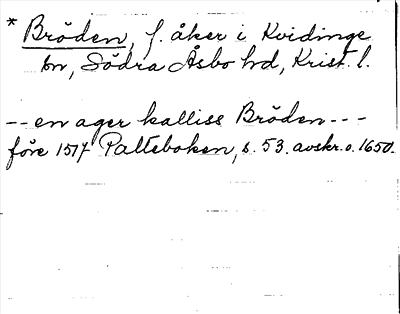 * Bröden, f. åker i Kvidinge
sn, Södra Åsbo hd, Krist. l.
-- en ager kalliss Bröden ---
före 1517 Palteboken, s. 53. avskr. o. 1650.